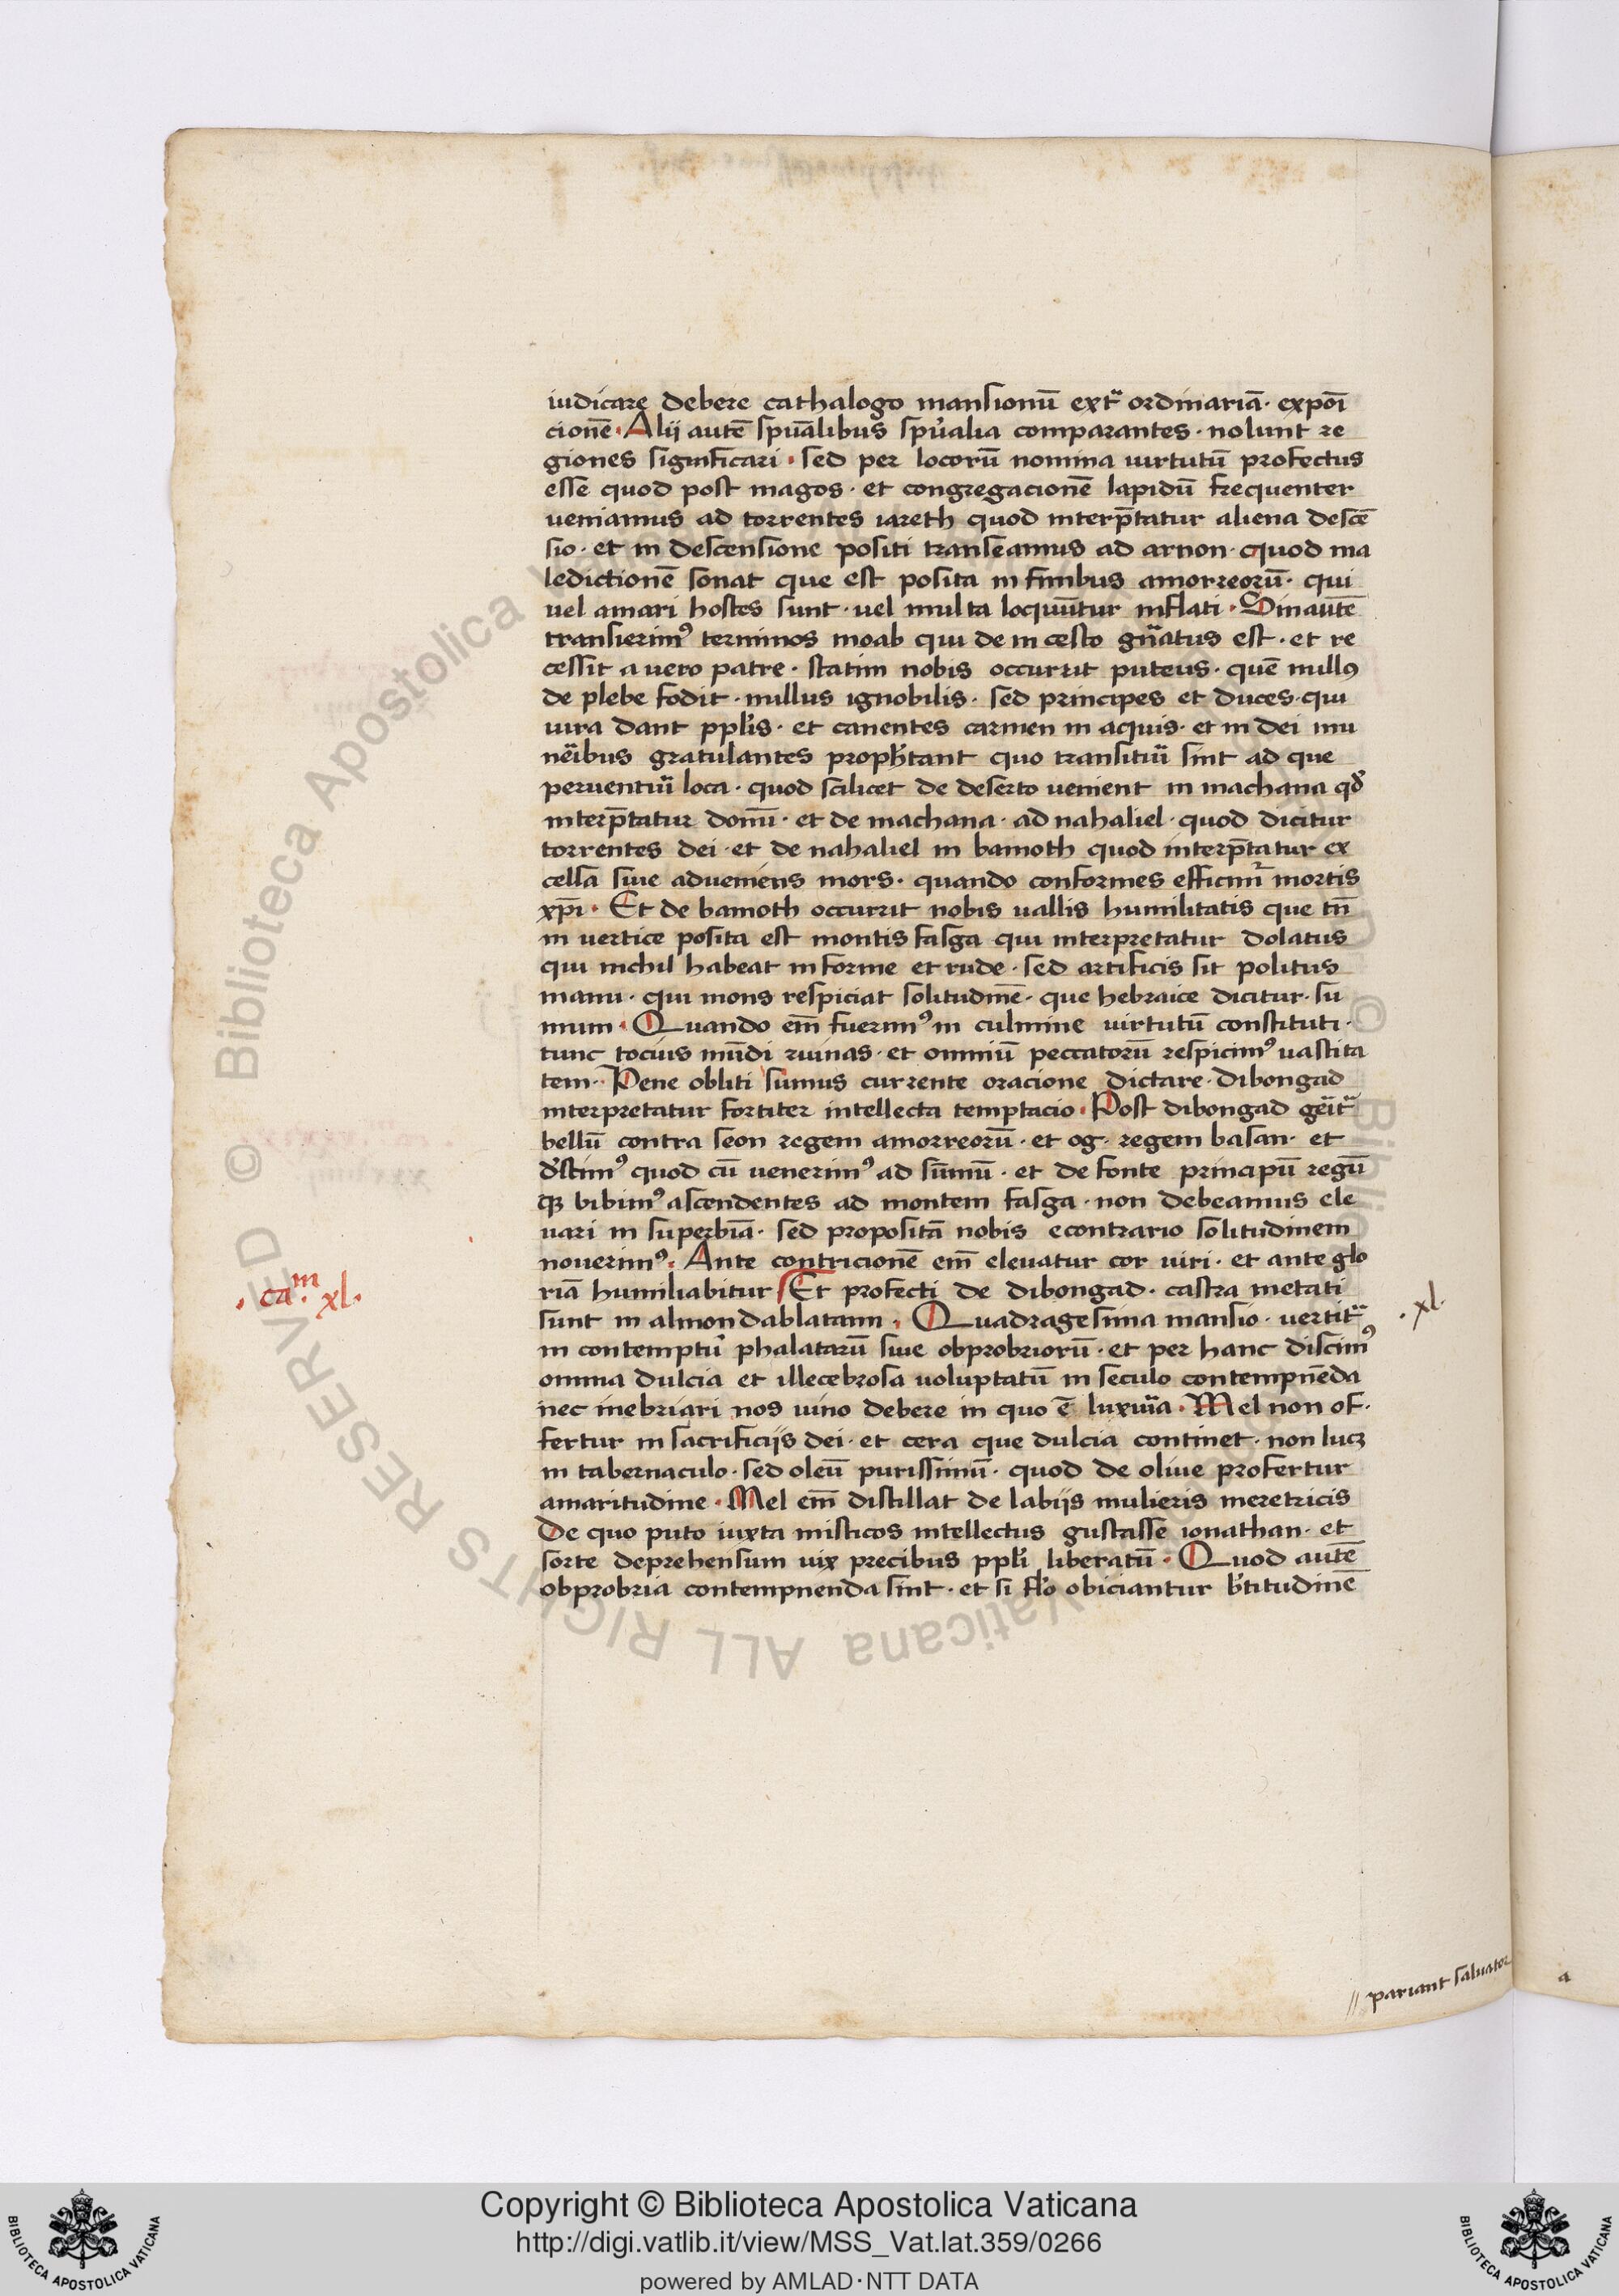 iudicare debere cathalogo mansionū ext͛ ordinariā· expoī
cionē· Alij autē spūalibus spūalia comparantes· nolunt re
giones significari· sed per locorū nomina uirtutū profectus
esse quod post magos· et congregacionē lapidū frequenter
ueniamus ad torrentes iareth quod interp̄tatur aliena descē
sio· et in descensione positi transeamus ad arnon· quod ma
ledictionē sonat que est posita in finibus amorreorū· qui
uel amari hostes sunt· uel multa loquūtur inflati· Sin autē
transierimꝰ terminos moab qui de in cesto gn̄atus est· et re
cessit a uero patre· statim nobis occurrit puteus· quē nullꝰ
de plebe fodit· nullus ignobilis· sed principes et duces· qui
iura dant ppl̄is· et canentes carmen in aquis· et in dei mu
nēibus gratulantes proph̄tant quo transitur̄i sint ad que
peruentur̄i loca· quod scilicet de deserto uenient in machana qđ
interp̄tatur donū· et de machana· ad nahaliel· quod dicitur
torrentes dei· et de nahaliel in bamoth quod interp̄tatur ex
cella siue adueniens mors· quando conformes efficimr̄ mortis
xp̄i· Et de bamoth occurrit nobis uallis humilitatis que tn̄
in uertice posita est montis fasga qui interpretatur dolatus
qui nichil habeat in forme et rude· sed artificis sit politus
manu· qui mons respiciat solitudinē· que hebraice dicitur· su
mum· Quando em̄ fuerimꝰ in culmine uirtutū constituti·
tunc tocius mūdi ruinas· et omniū peccatorū respicimꝰ uastita
tem·· Pene obliti sumus currente oracione dictare· dibongad
interpretatur fortiter intellecta temptacio· Post dibongad gēit͛
bellū contra seon regem amorreorū· et og· regem basan· et
d̄scimꝰ quod cū uenerimꝰ ad sūmū· et de fonte principū regū
qꝫ bibimꝰ ascendentes ad montem fasga· non debeamus ele
uari in superbiā· sed propositā nobis econtrario solitudinem
nouerimꝰ· Ante contricionē em̄ eleuatur cor uiri· et ante glo
riā humiliabitur Et profecti de dibongad· castra metati
sunt in almondablataim· Quadragesima mansio· uertit͛
in contemptū phalatarū siue obprobriorū· et per hanc discimꝰ
omnia dulcia et illecebrosa uoluptatū in seculo contempnēda
nec inebriari nos uino debere in quo ē luxur̄ia· Mel non of·
fertur in sacrificijs dei· et cera que dulcia continet· non lucꝫ
in tabernaculo· sed oleū purissimū· quod de oliue profertur
amaritudine· Mel em̄ distillat de labijs mulieris meretricis
De quo puto iuxta misticos intellectus gustasse ionathan· et
sorte deprehensum uix precibus ppl̄i liberatū· Quod autē
obprobria contempnenda sint· et si fl̄o obiciantur b̄titudinē
· ca.m xl·
· xl·
// pariant saluator
a
Copyright © Biblioteca Apostolica Vaticana
http://digi.vatlib.it/view/MSS_Vat.lat.359/0266
powered by AMLAD·NTT DATA
BIBLIOTECA APOSTOLICA VATICANA
BIBLIOTECA APOSTOLICA VATICANA
© Biblioteca Apostolica Vaticana ALL RIGHTS RESERVED